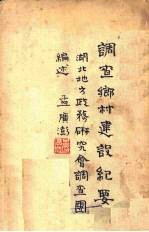 調查鄉村建設紀要
湖北地方政務研究會調查團
編述 孟廣澎